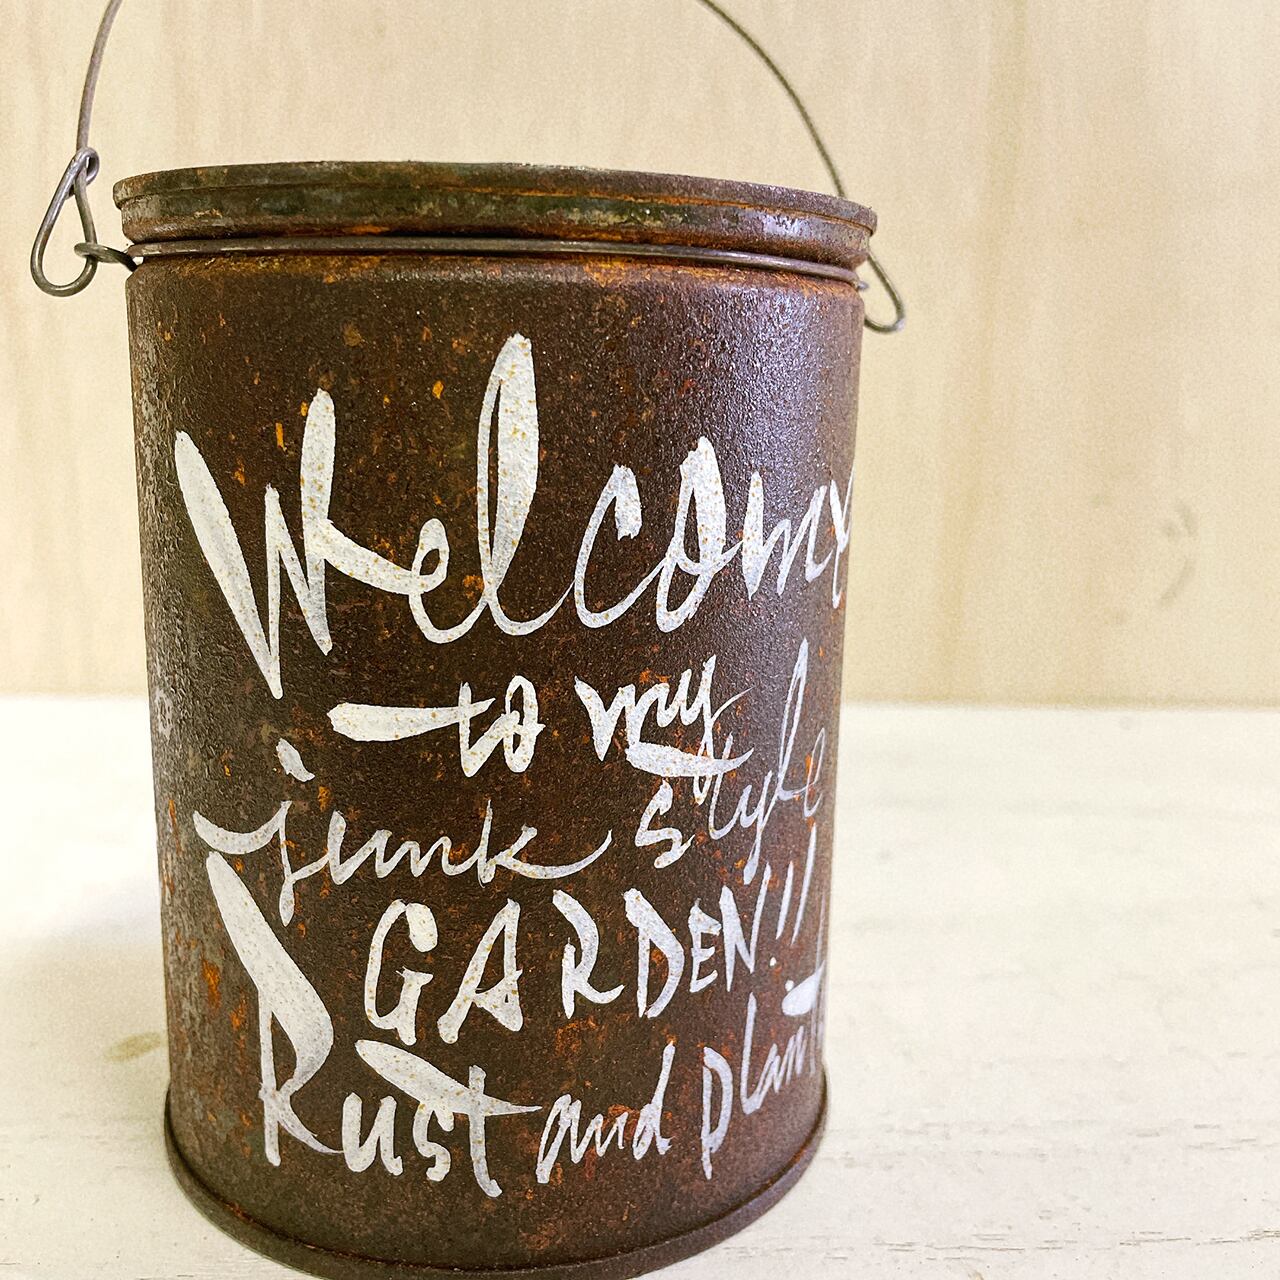 Welcome
to my
junk style
GARDEN!!
Rust and plant